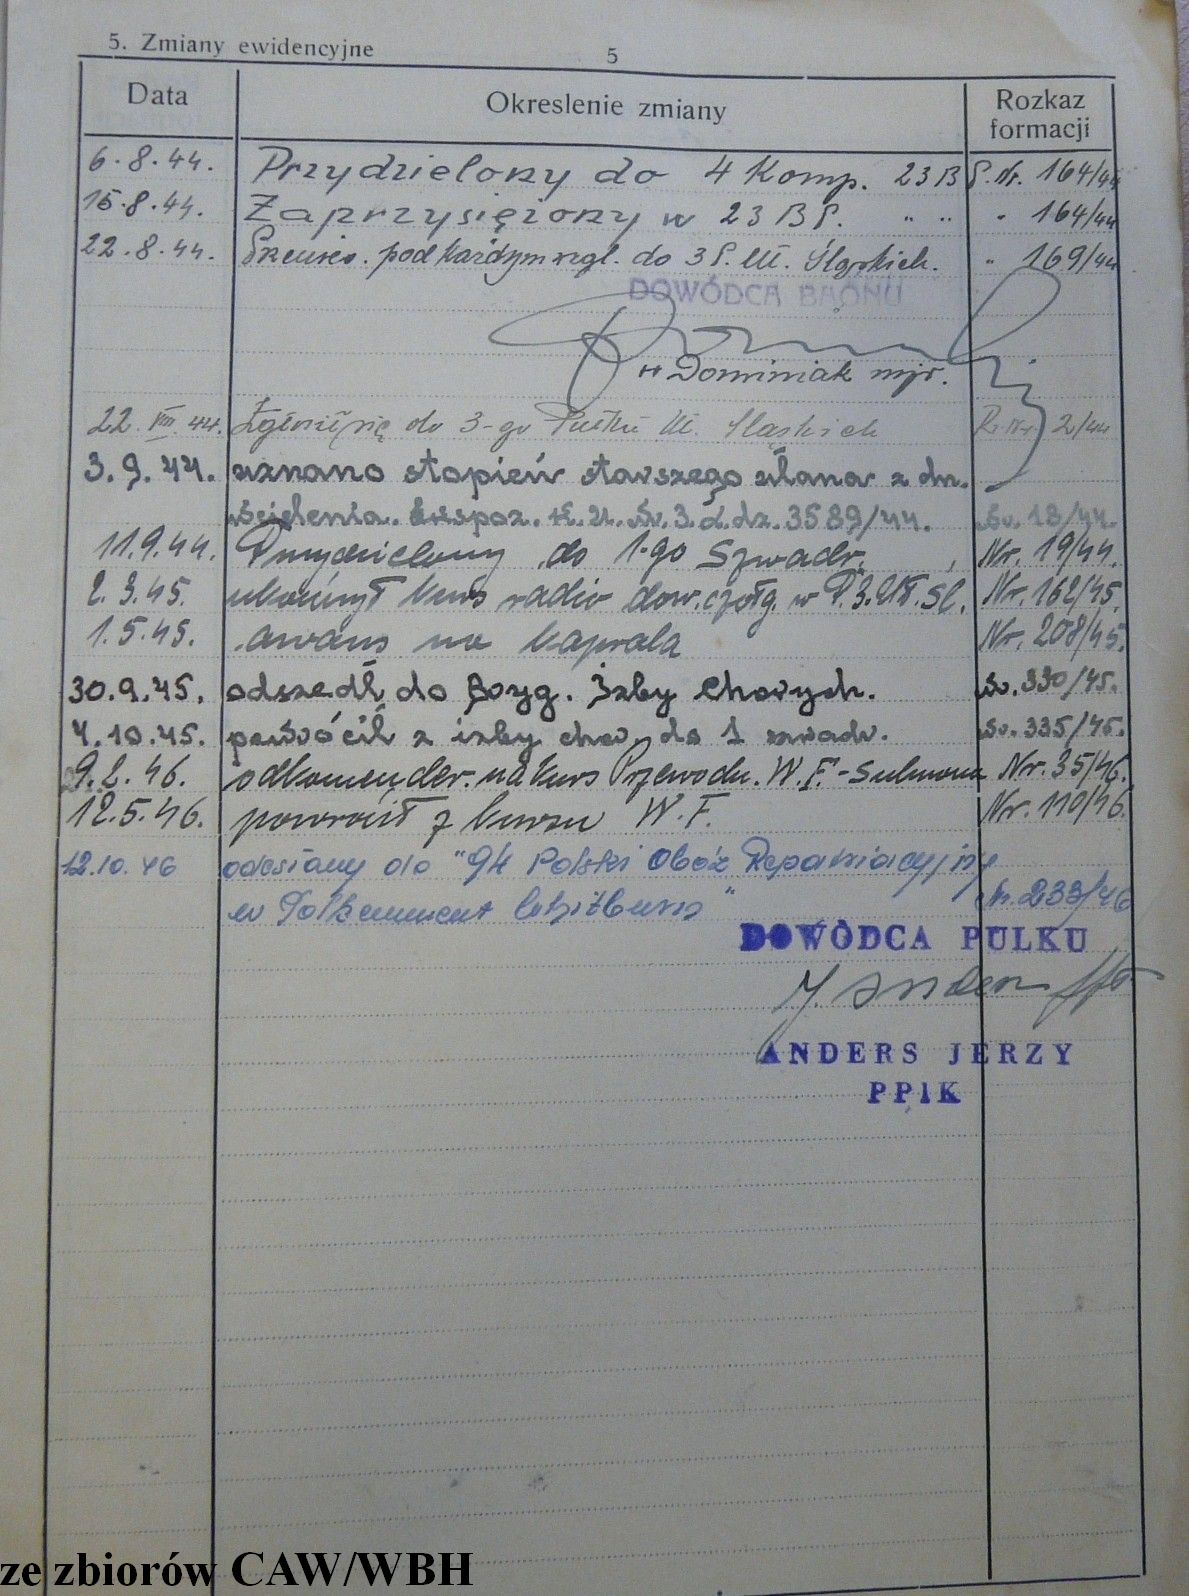 5. Zmiany ewidencyjne 5
Data Okreslenie zmiany Rozkaz formacji
6.8.44. Przydzielony do 4 Komp. 23 B P. Nr. 164/44
15.8.44. Zaprzysiężony w 23 B P. " " " 164/44
22.8.44. pod każdym wzgl. do 3 P. Uł. Śląskich. " 169/44
DOWÓDCA BAONU
Dominiak mjr.
22.VIII.44. Zgłosił się do 3-go Pułku Uł. Śląskich R. Nr. 2/44
3.9.44. uznano stopień starszego ułana z dn.
wcielenia. Ekspoz. L.dz. 3589/44. Nr. 18/44.
11.9.44. Przydzielony do 1-go Szwadr. Nr. 19/44.
2.3.45. ukończył kurs radio dow. czołg. w P. 3. Uł. Śl. Nr. 162/45.
1.5.45. awans na kaprala Nr. 208/45.
30.9.45. odszedł do Bryg. Izby Chorych. Nr. 330/45.
4.10.45. powrócił z izby chor. do 1 szwadr. Nr. 335/45.
9.2.46. odkomender. na kurs Przewodn. W.F.-Sulmona Nr. 35/46.
12.5.46. powrócił z kursu W.F. Nr. 110/46.
12.10.46 odesłany do "94 Polski Obóz Repatriacyjny
w " Nr. 233/46
DOWÓDCA PUŁKU
J. Anders
ANDERS JERZY
PPłK
ze zbiorów CAW/WBH